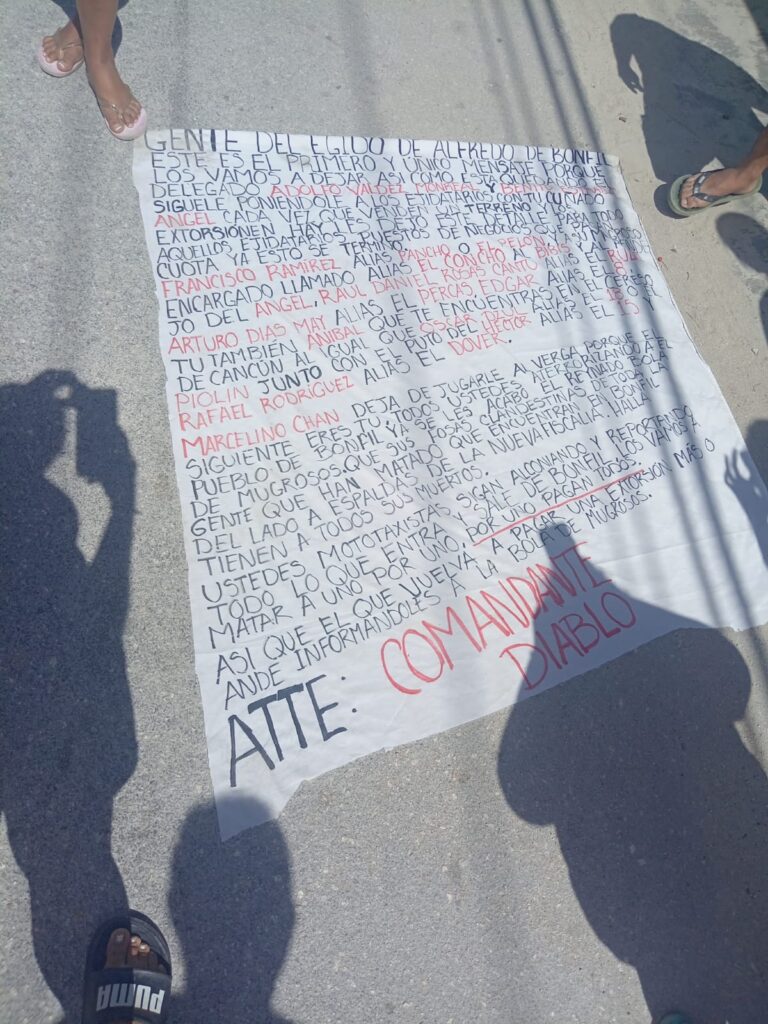 GENTE DEL EGIDO DE ALFREDO DE BONFIL
ESTE ES EL PRIMERO Y UNICO MENSAJE PORQUE
LOS VAMOS A DEJAR ASI COMO ESTE QUE ACABO
DELEGADO ADOLFO VALDEZ MONREAL Y BENITO
SIGUELE PONIENDOLE A LOS EJIDATARIOS CON TU CUÑADO
ANGEL CADA VEZ QUE VENDEN UN TERRENO
EXTORSIONEN HAY LES VA ESTE DETALLE PARA TODO
AQUELLOS EJIDATARIOS Y PUESTOS DE NEGOCIOS QUE
CUOTA YA ESTO SE TERMINO.
FRANCISCO RAMIREZ ALIAS PANCHO O EL PELON
ENCARGADO LLAMADO ALIAS EL CONCHO
JO DEL ANGEL, RAUL DANIEL ROSAS CANTO ALIAS EL
ARTURO DIAS MAY ALIAS EL PERCAS EDGAR ALIAS EL
TU TAMBIEN ANIBAL QUE TE ENCUENTRAS EN EL CERESO
DE CANCÚN AL IGUAL QUE OSCAR DZUL ALIAS EL
PIOLIN JUNTO CON EL PUTO DEL HECTOR ALIAS EL
RAFAEL RODRIGUEZ ALIAS EL DOVER.
MARCELINO CHAN DEJA DE JUGARLE AL VERGA PORQUE EL
SIGUIENTE ERES TU, TODOS USTEDES TERRORIZANDO EL
PUEBLO DE BONFIL YA SE LES ACABO EL REINADO BOLA
DE MUGROSOS. QUE SUS FOSAS CLANDESTINAS DE TODA LA
GENTE QUE HAN MATADO QUE ENCUENTRAN EN BONFIL
DEL LADO A ESPALDAS DE LA NUEVA FISCALIA. HALLI
TIENEN A TODOS SUS MUERTOS.
USTEDES MOTOTAXISTAS SIGAN ALCONANDO Y REPORTENDO
TODO LO QUE ENTRA Y SALE DE BONFIL LOS VAMOS A
MATAR A UNO POR UNO, POR UNO PAGAN TODOS.
ASI QUE EL QUE VUELVA A PAGAR UNA EXTORSION MÁS O
ANDE INFORMANDOLES A LA BOLA DE MUGROSOS.
ATTE: COMANDANTE
DIABLO
PUMA